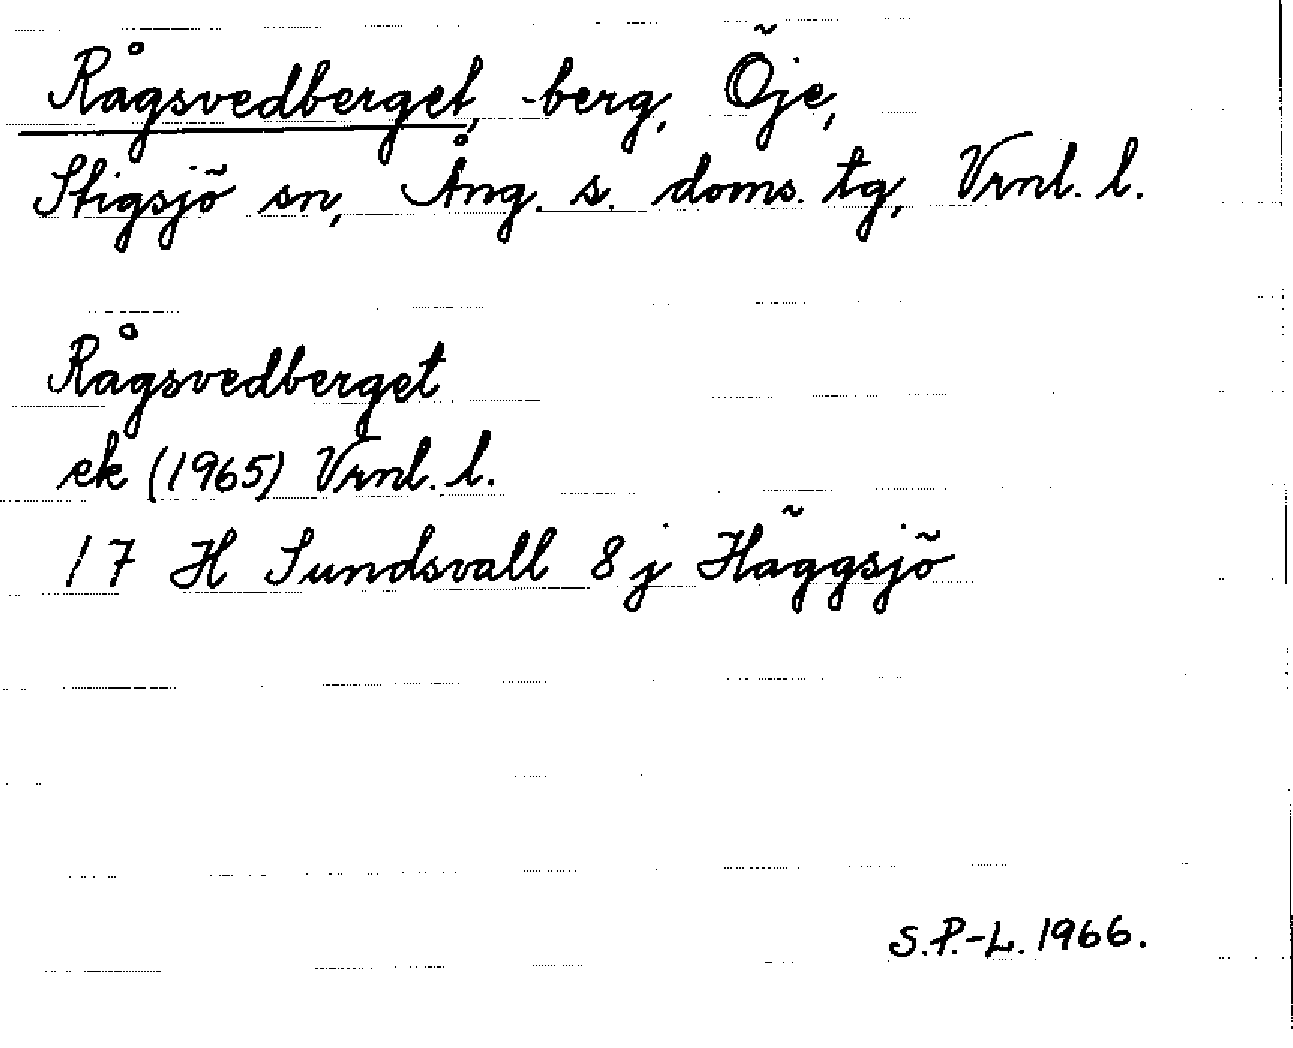 Rågsvedberget, -berg, Öje,
Stigsjö sn, Ång. s. doms. tg, Vrnl. l.
Rågsvedberget
ek (1965) Vrnl. l.
17 H Sundsvall 8 j Häggsjö
S.P.-L. 1966.